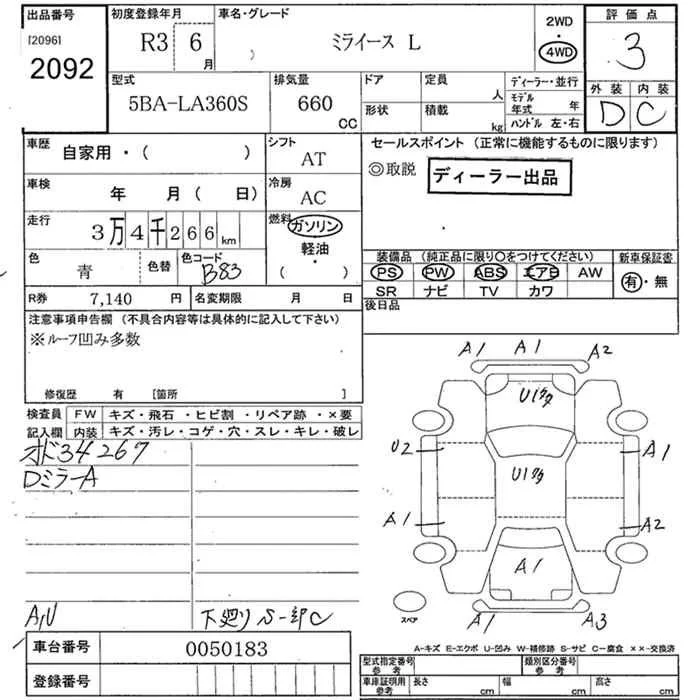 出品番号 初度登録年月 車名・グレード 2WD ・ 4WD 評価点
[2096] 2092 R3 6月 ミライース L 3
型式 排気量 ドア 定員 人 ディーラー・並行 外装 内装
5BA-LA360S 660 CC 形状 積載 kg モデル年式 年 ハンドル 左・右 D C
車歴 自家用・( ) シフト AT セールスポイント (正常に機能するものに限ります)
◎取説 ディーラー出品
車検 年 月( 日) 冷房 AC
走行 3万4千266km 燃料 ガソリン・軽油・( )
色 青 色替 色コード B83
装備品 (純正品に限り○をつけてください) 新車保証書
PS PW ABS エアB AW 有・無
SR ナビ TV カワ
R券 7,140 円 名変期限 月 日 後日品
注意事項申告欄 (不具合内容等は具体的に記入して下さい)
※ルーフ凹み多数
修復歴 有 [箇所 ]
検査員記入欄 FW キズ・飛石・ヒビ割・リペア跡・×要
内装 キズ・汚レ・コゲ・穴・スレ・キレ・破レ
オド34267
DミラーA
A,U 下廻りS-部C
A1 A1 A2
U1タタ
U2 A1
U1タタ
A1 A2
A1
A1 A3
スペア
A-キズ E-エクボ U-凹み W-補修跡 S-サビ C-腐食 ××-交換済
車台番号 0050183
登録番号
型式指定番号 参考 類別区分番号 参考
車庫証明用 参考 長さ cm 幅 cm 高さ cm